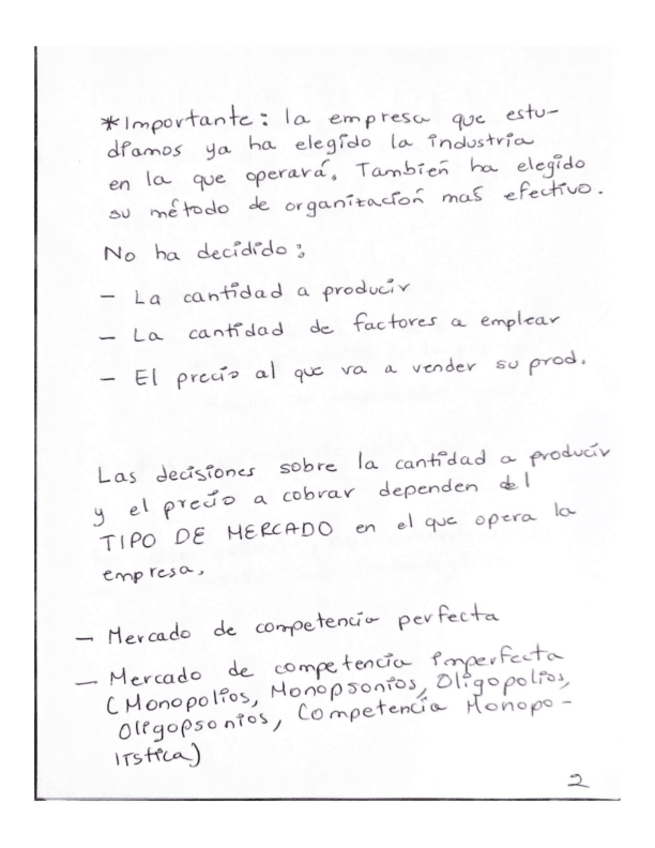 *Importante: la empresa que estu-
diamos ya ha elegido la industria
en la que operará. También ha elegido
su método de organización mas efectivo.
No ha decidido:
- La cantidad a producir
- La cantidad de factores a emplear
- El precio al que va a vender su prod.
Las decisiones sobre la cantidad a producir
y el precio a cobrar dependen del
TIPO DE MERCADO en el que opera la
empresa.
- Mercado de competencia perfecta
- Mercado de competencia imperfecta
(Monopolios, Monopsonios, Oligopolios,
Oligopsonios, Competencia Monopo-
lística)
2